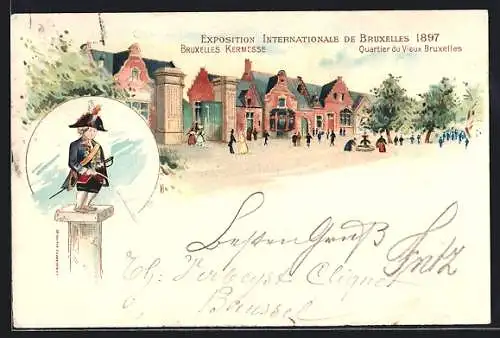 Exposition Internationale de Bruxelles 1897
Bruxelles Kermesse Quartier du Vieux Bruxelles
Besten Gruß
Fritz
Th: